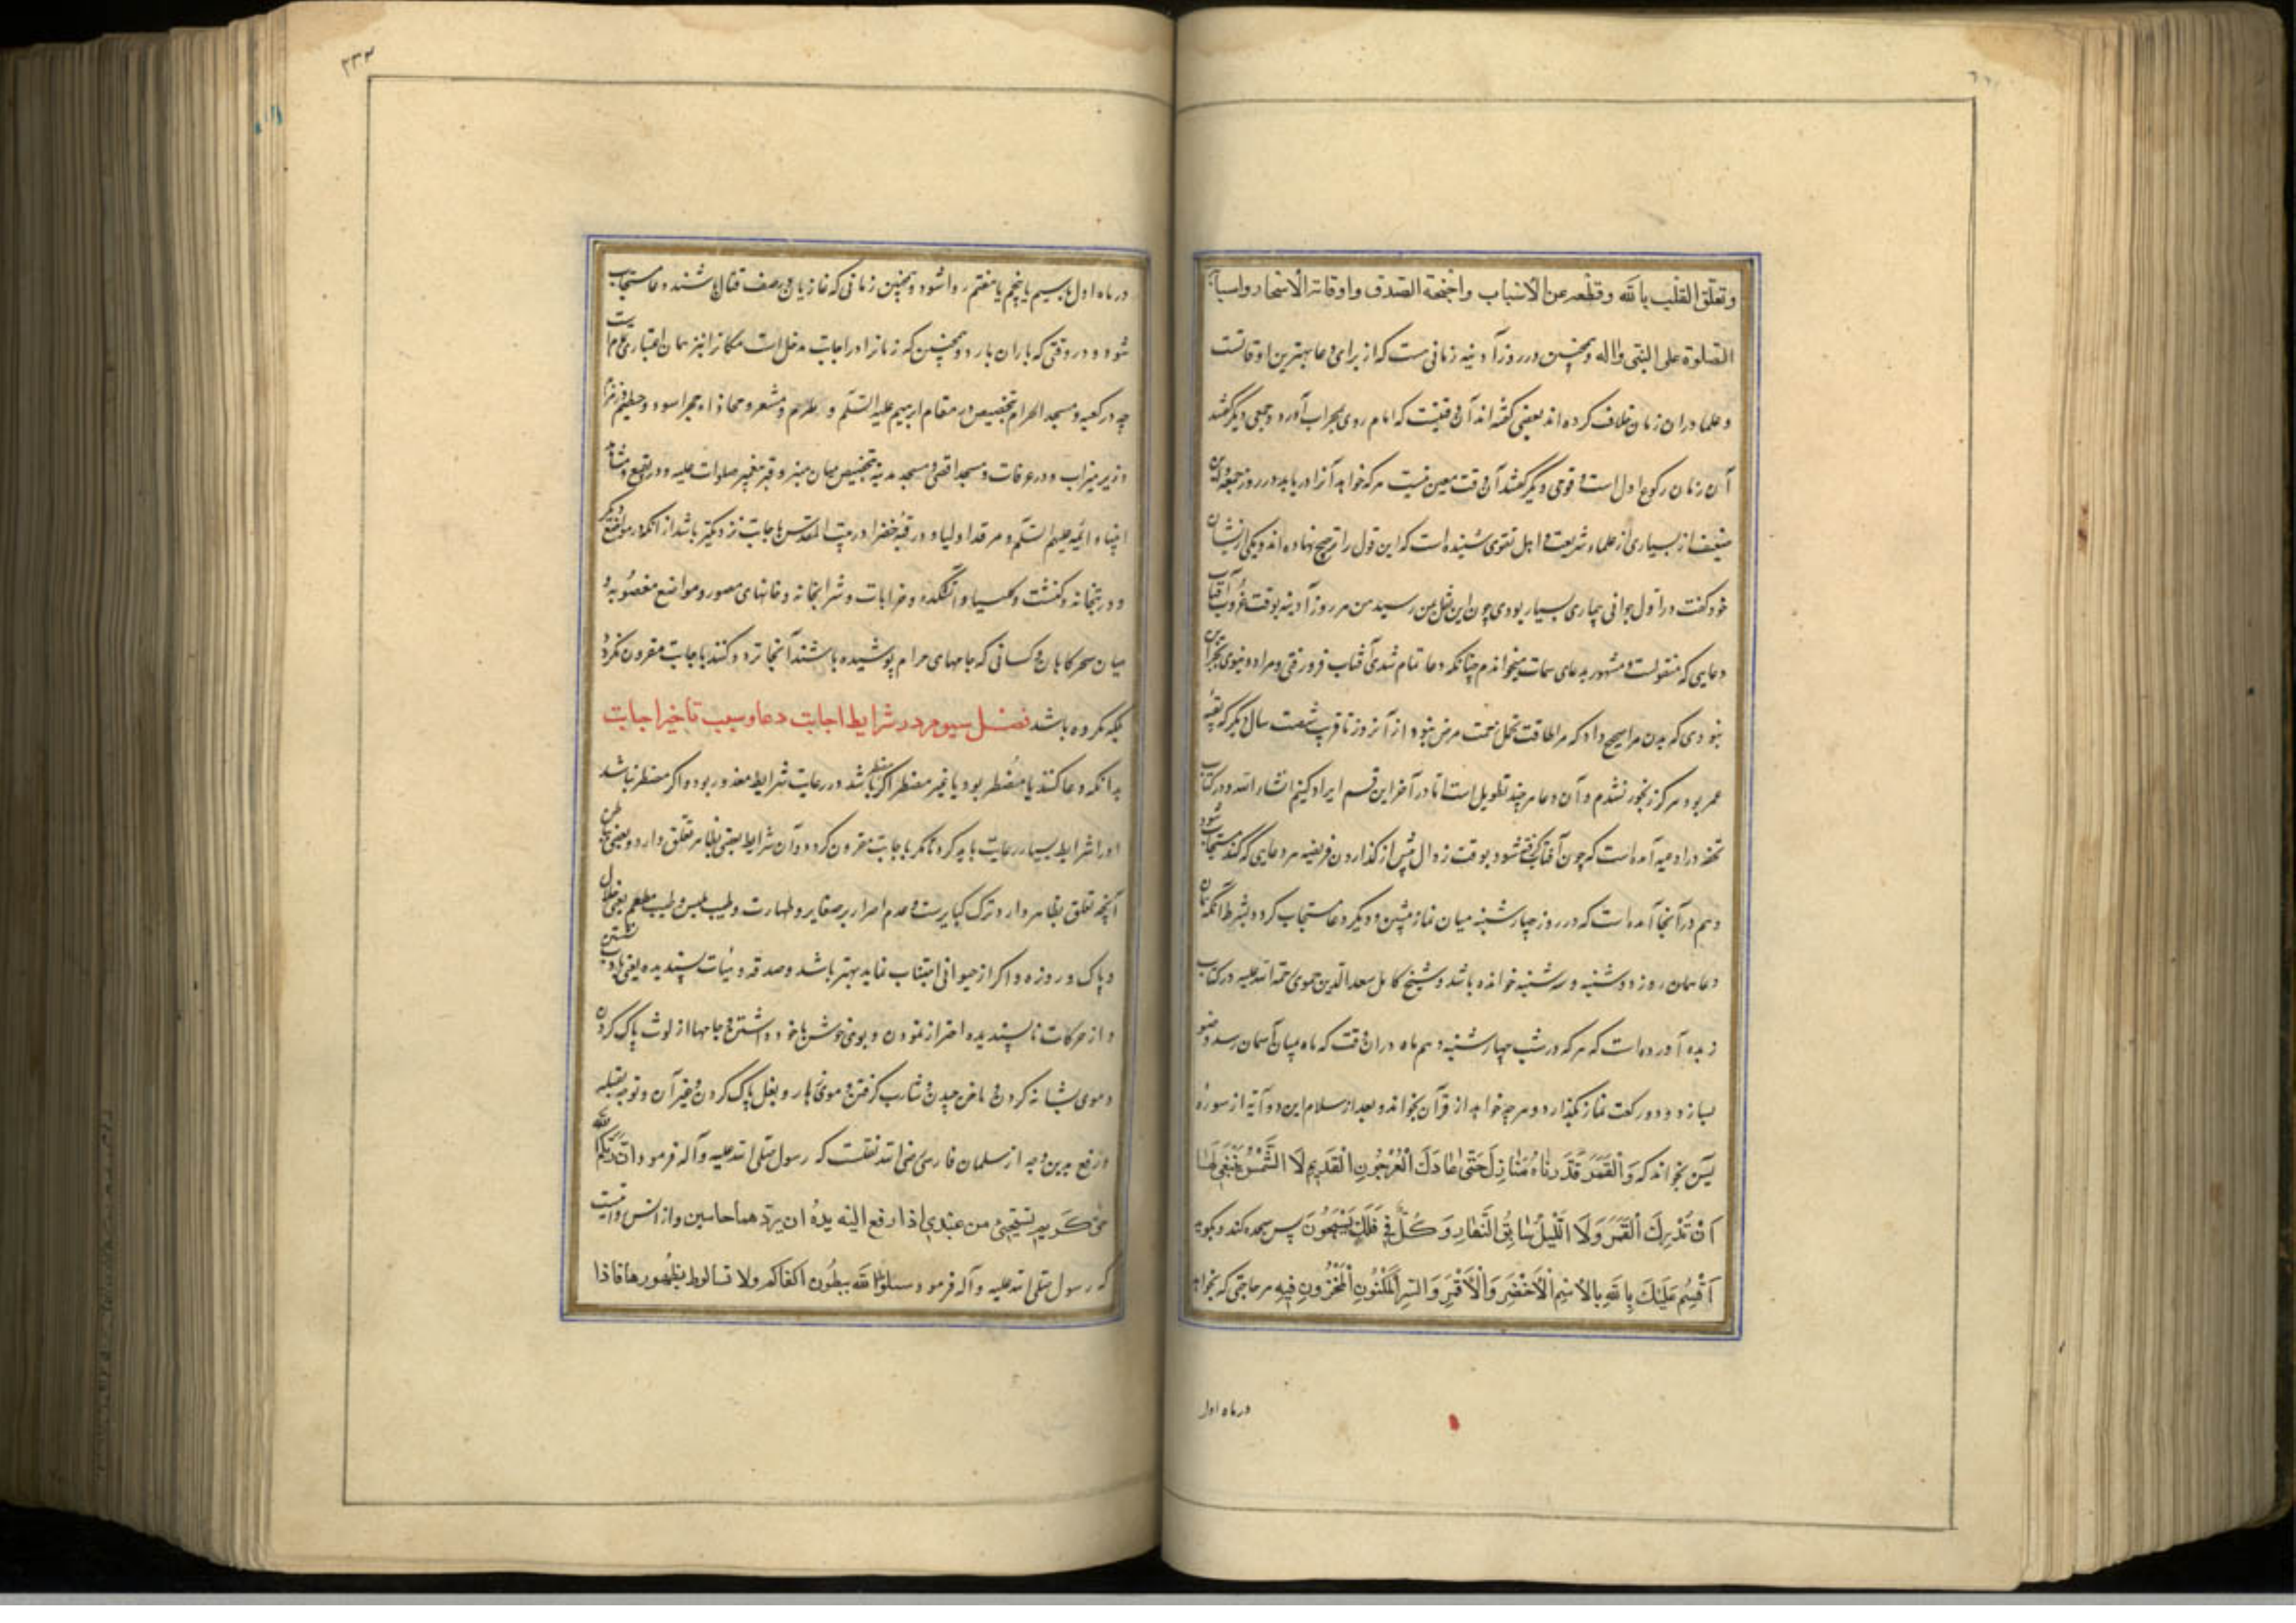 وتعلّق القلب بالله وقطعه عن الاسباب واجنحة الصدق واوقاته الاسحار واسبابه
الصلوة علی النبی واله وهمچنین در روز آدینه زمانی هست که از برای دعا بهترین اوقاتست
وعلما دران زمان خلاف کرده اند بعضی گفته اند آن وقتیست که امام روی بمحراب آورد وجمعی دیگر گفتند
آن زمان رکوع اول است وقومی دیگر گفتند آن وقت معین نیست هرکه خواهد آنرا دریابد در روز جمعه
از بسیاری از علماء شریعت و اهل تقوی شنیده است که این قول را ترجیح نهاده اند ویکی ازیشان
خود گفت در اول جوانی بیماری بسیار بودی چون این نقل بمن رسید من هر روز آدینه بوقت غروب آفتاب
دعایی که منقولست ومشهور بدعای سمات میخواندم چنانکه دعا تمام شدی آفتاب فرو رفتی ومراد دنیوی
نبودی که بدن مرا صحیح دارد که مرا طاقت تحمل زحمت مرض نبود از آن روز تا قرب شصت سال دیگر که بقیه
عمر بود هرگز رنجور نشدم وآن دعا هرچند تطویل است اما در آخر این قسم ایراد کنیم انشاء الله ودر کتاب
تحفه در ادعیه آمده است که چون آفتاب گرفته شود بوقت زوال پیش از گذاردن فریضه هر دعایی که کند مستجاب شود
وهم در آنجا آمده است که در روز چهارشنبه میان نماز پیشین ودیگر دعا مستجاب گردد بشرط آنکه همان
دعا همان روز دوشنبه وسه شنبه خوانده باشد وشیخ کامل سعد الدین حموی رحمة الله علیه در کتاب
زبده آورده است که هرکه در شب چهارشنبه دهم ماه دران وقت که ماه بمیان آسمان رسد وضو
بسازد ودو رکعت نماز بگذارد وهرچه خواهد از قرآن بخواند وبعد از سلام این دو آیه از سوره
یٰسن بخواند که وَالْقَمَرَ قَدَّرْنَاهُ مَنَازِلَ حَتّٰی عَادَ كَالْعُرْجُونِ الْقَدِیمِ لَا الشَّمْسُ یَنْبَغِی لَهَا
اَنْ تُدْرِكَ الْقَمَرَ وَلَا اللَّیْلُ سَابِقُ النَّهَارِ وَكُلٌّ فِی فَلَكٍ یَسْبَحُونَ پس سجده کند وبگوید
اَقْسِمُ عَلَیْكَ یَا اللهِ بِالْاِسْمِ الْاَخْضَرِ وَالْاَقْبَرِ وَالسِّرِّ الْمَكْنُونِ الْمَخْزُونِ فِیهِ هر حاجتی که بخواهد
در ماه اول
۲۳۲
در ماه اول یا سیم یا پنجم یا هفتم روا شود وهمچنین زمانی که غازیان در صف قتال باشند دعا مستجاب
شود ودر وقتی که باران بارد وهمچنین که زمان را در اجابت مدخل است مکان را نیز همان اعتباری تمام است
چه در کعبه ومسجد الحرام بتخصیص در مقام ابرهیم علیه السلم وملتزم ومشعر ومحاذاه حجر اسود وحطیم وزمزم
وزیر میزاب ودر عرفات ومسجد اقصی ومسجد مدینه بتخصیص میان منبر وقبر پیغمبر صلوات علیه ودر بقیع ومشاهد
انبیا وائمه علیهم السلم ومرقد اولیا ودر قبه خضرا در بیت المقدس باجابت نزدیکتر باشد از آنکه در مواضع دیگر
ودر بتخانه وکنشت وکلیسیا وآتشکده وخرابات وشرابخانه وخانهای مصور ومواضع مغصوبه و
میان سحر کاهان وکسانی که جامهای حرام پوشیده باشند آنجا تردد کنند باجابت مقرون نگردد
بلکه مکروه باشد فصل سیوم در شرایط اجابت دعا وسبب تاخیر اجابت
بدانکه دعا کننده یا مضطر بود یا غیر مضطر اگر مضطر باشد در رعایت شرایط معذور بود واگر مضطر نباشد
اورا شرایط بسیار رعایت باید کرد تا مگر باجابت مقرون گردد وآن شرایط بعضی بظاهر تعلق دارد وبعضی بباطن
آنچه تعلق بظاهر دارد ترک کبایرست وعدم اصرار بر صغایر وطهارت وطیب ملبس وطیب مطعم یعنی حلال
وپاک وروزه واگر از حیوانی اجتناب نماید بهتر باشد وصدقه ونیات پسندیده یعنی بادب نشستن
واز حرکات ناپسندیده احتراز نمودن وبوی خوش با خود داشتن وجامها از لوث پاک کردن
وموی بشانه کردن وناخن چیدن وشارب گرفتن وموی زهار وبغل پاک کردن وغیر آن وتوجه بقبله
ورفع یدین وجه از سلمان فارسی رضی الله نقلست که رسول صلی الله علیه وآله فرمود ان ربکم الله
حیّ کریم یستحیی من عبدی اذا رفع الیه یدهُ ان یردّهما خایبین واز انس روایت است
که رسول صلی الله علیه وآله فرمود سلوا الله ببطون اکفاکم ولا تسالوه بظهورها فاذا